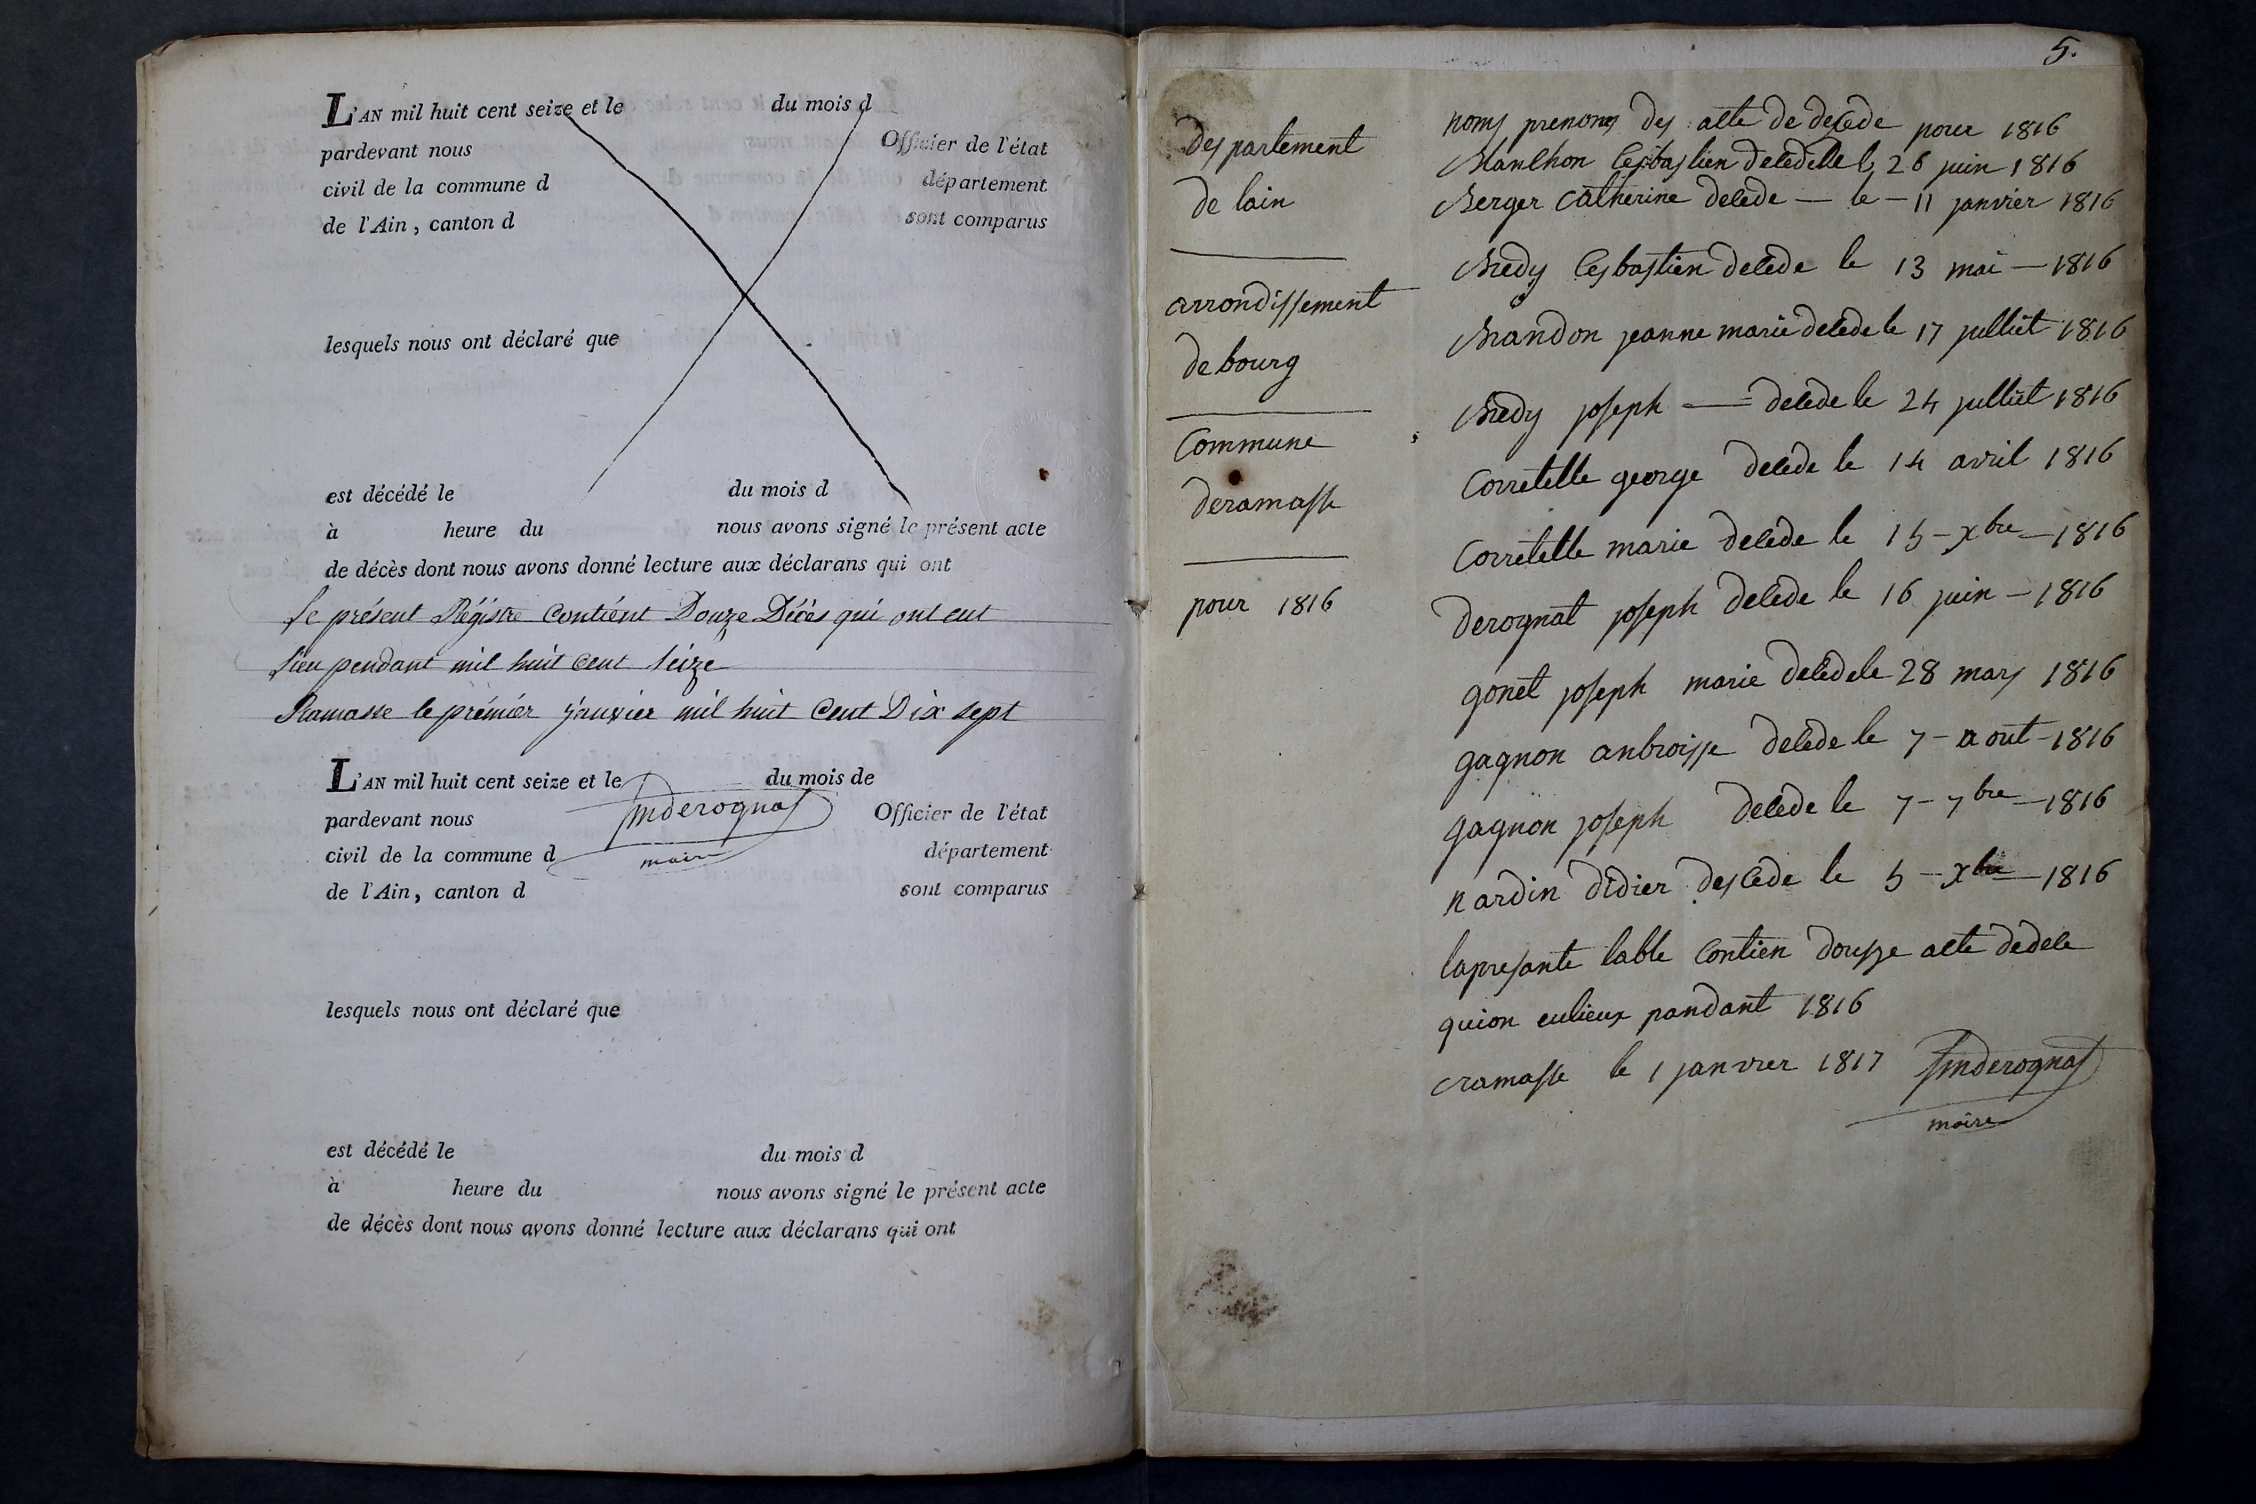 L'AN mil huit cent seize et le du mois d
pardevant nous Officier de l'état
civil de la commune d département
de l'Ain, canton d sont comparus
lesquels nous ont déclaré que
est décédé le du mois d
à heure du nous avons signé le présent acte
de décès dont nous avons donné lecture aux déclarans qui ont
le présent Régistre contiént Douze Décès qui ont eut
lieu pendant mil huit cent seize
Ramasse le prémiér janvier mil huit cent Dix sept
L'AN mil huit cent seize et le du mois de
pardevant nous Officier de l'état
civil de la commune d département
de l'Ain, canton d sont comparus
derognat
maire
lesquels nous ont déclaré que
est décédé le du mois d
à heure du nous avons signé le présent acte
de décès dont nous avons donné lecture aux déclarans qui ont
5.
des partement
de lain
arrondissement
de bourg
Commune
deramasse
pour 1816
noms prenoms des acte de decede pour 1816
Blanchon cesbastien decede le 26 juin 1816
Berger catherine decede — le — 11 janvier 1816
Bredy cesbastien decede le 13 mai — 1816
Brandon jeanne marie decede le 17 julliet 1816
Bredy joseph — decede le 24 julliet 1816
Corretelle george decede le 14 avril 1816
Corretelle marie decede le 15 - xbre — 1816
derognat joseph decede le 16 juin — 1816
gonet joseph marie decede le 28 mars 1816
gagnon anbroisse decede le 7 - aout - 1816
gagnon joseph decede le 7 - 7bre — 1816
nardin didier descede le 5 - xbre — 1816
lapresante table contien dousze acte dedece
quion eulieux pandant 1816
aramasse le 1 janvier 1817 derognat
maire